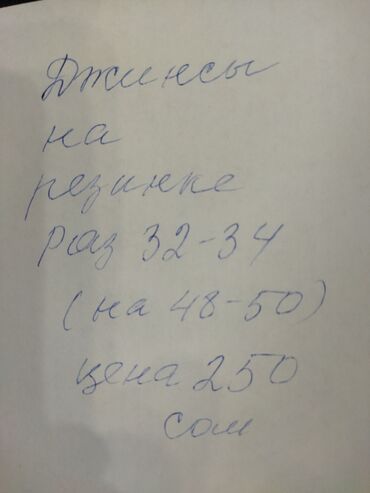 Джинсы
на
резинке
раз 32-34
(на 48-50)
цена 250
сом